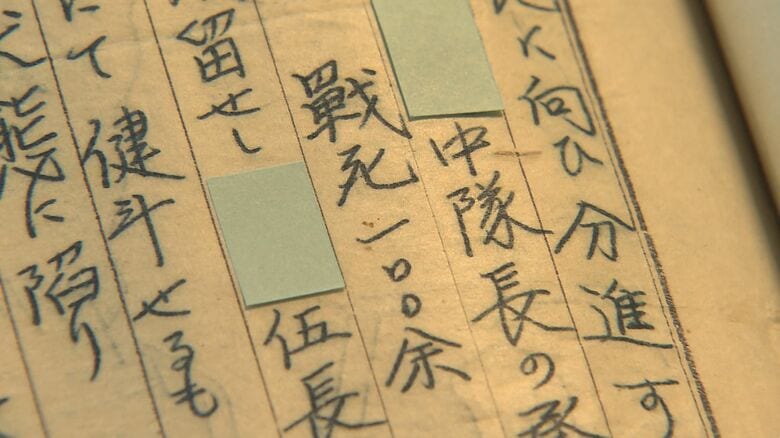 に向ひ分進す
中隊長の
戰死一〇〇余
留せし 伍長
て健斗せるも
態に陥り